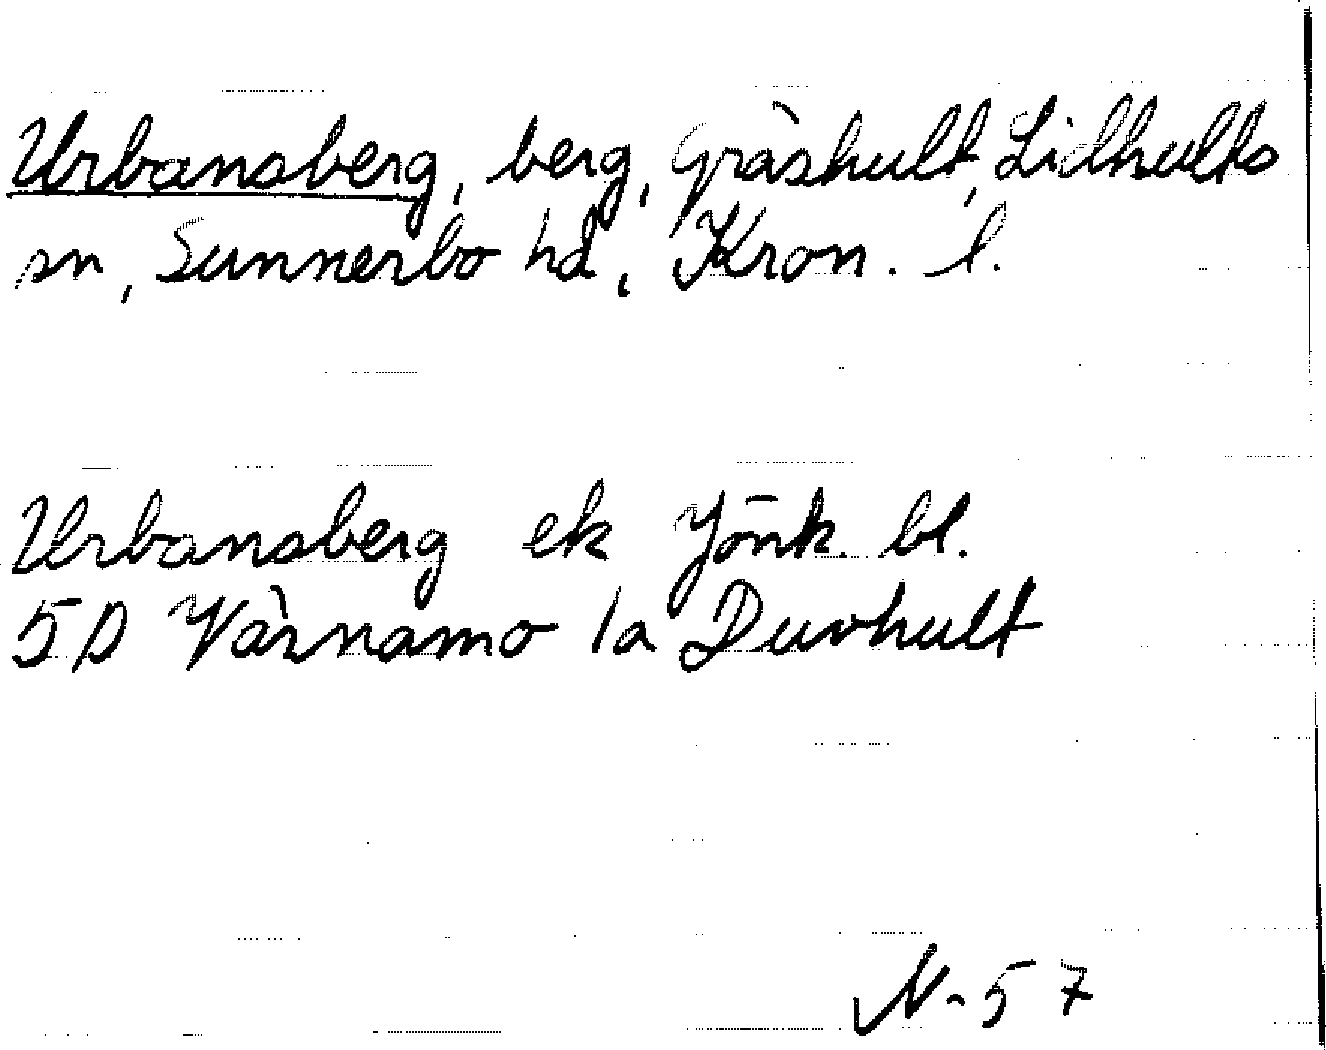 Urbansberg, berg, Gräshult, Lidhults
sn, Sunnerbo hd, Kron. l.
Urbansberg ek Jönk. bl.
5D Värnamo 1a Duvhult
N-57